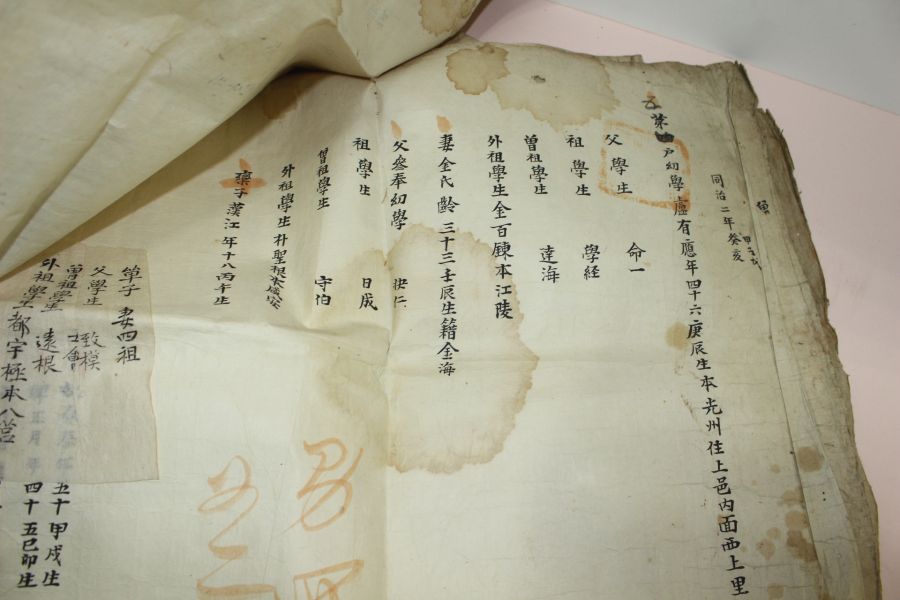 同治二年癸亥
第 戶幼學盧有應年四十六庚辰生本光州住上邑內面西上里
父學生 命一
祖學生 學經
曾祖學生 達海
外祖學生金百鍊本江陵
妻金氏齡三十三壬辰生籍金海
父參奉幼學 仁
祖學生 日成
曾祖學生 守伯
外祖學生朴聖根本
子漢江年十八丙午生
單子 妻四祖
父學生 致模
曾祖學生
外祖學生 遠根
都宇極本八莒
五十甲戌生
四十五己卯生